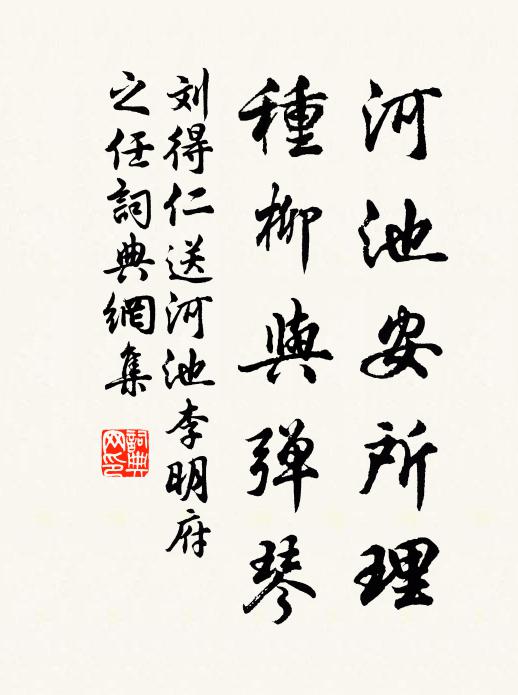 河池安所理
種柳與弹琴
刘得仁送河池李明府
之任詞典網集
詞典网印